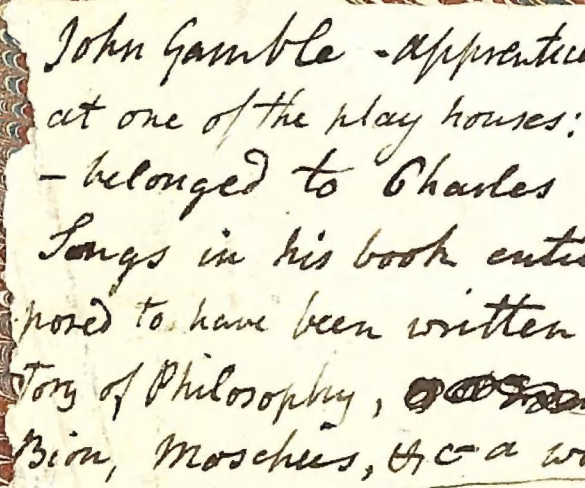 John Gamble - apprentice
at one of the play houses:
- belonged to Charles
Songs in his book entit
posed to have been written
Tory of Philosophy,
Bion, Moschus, &c - a wo